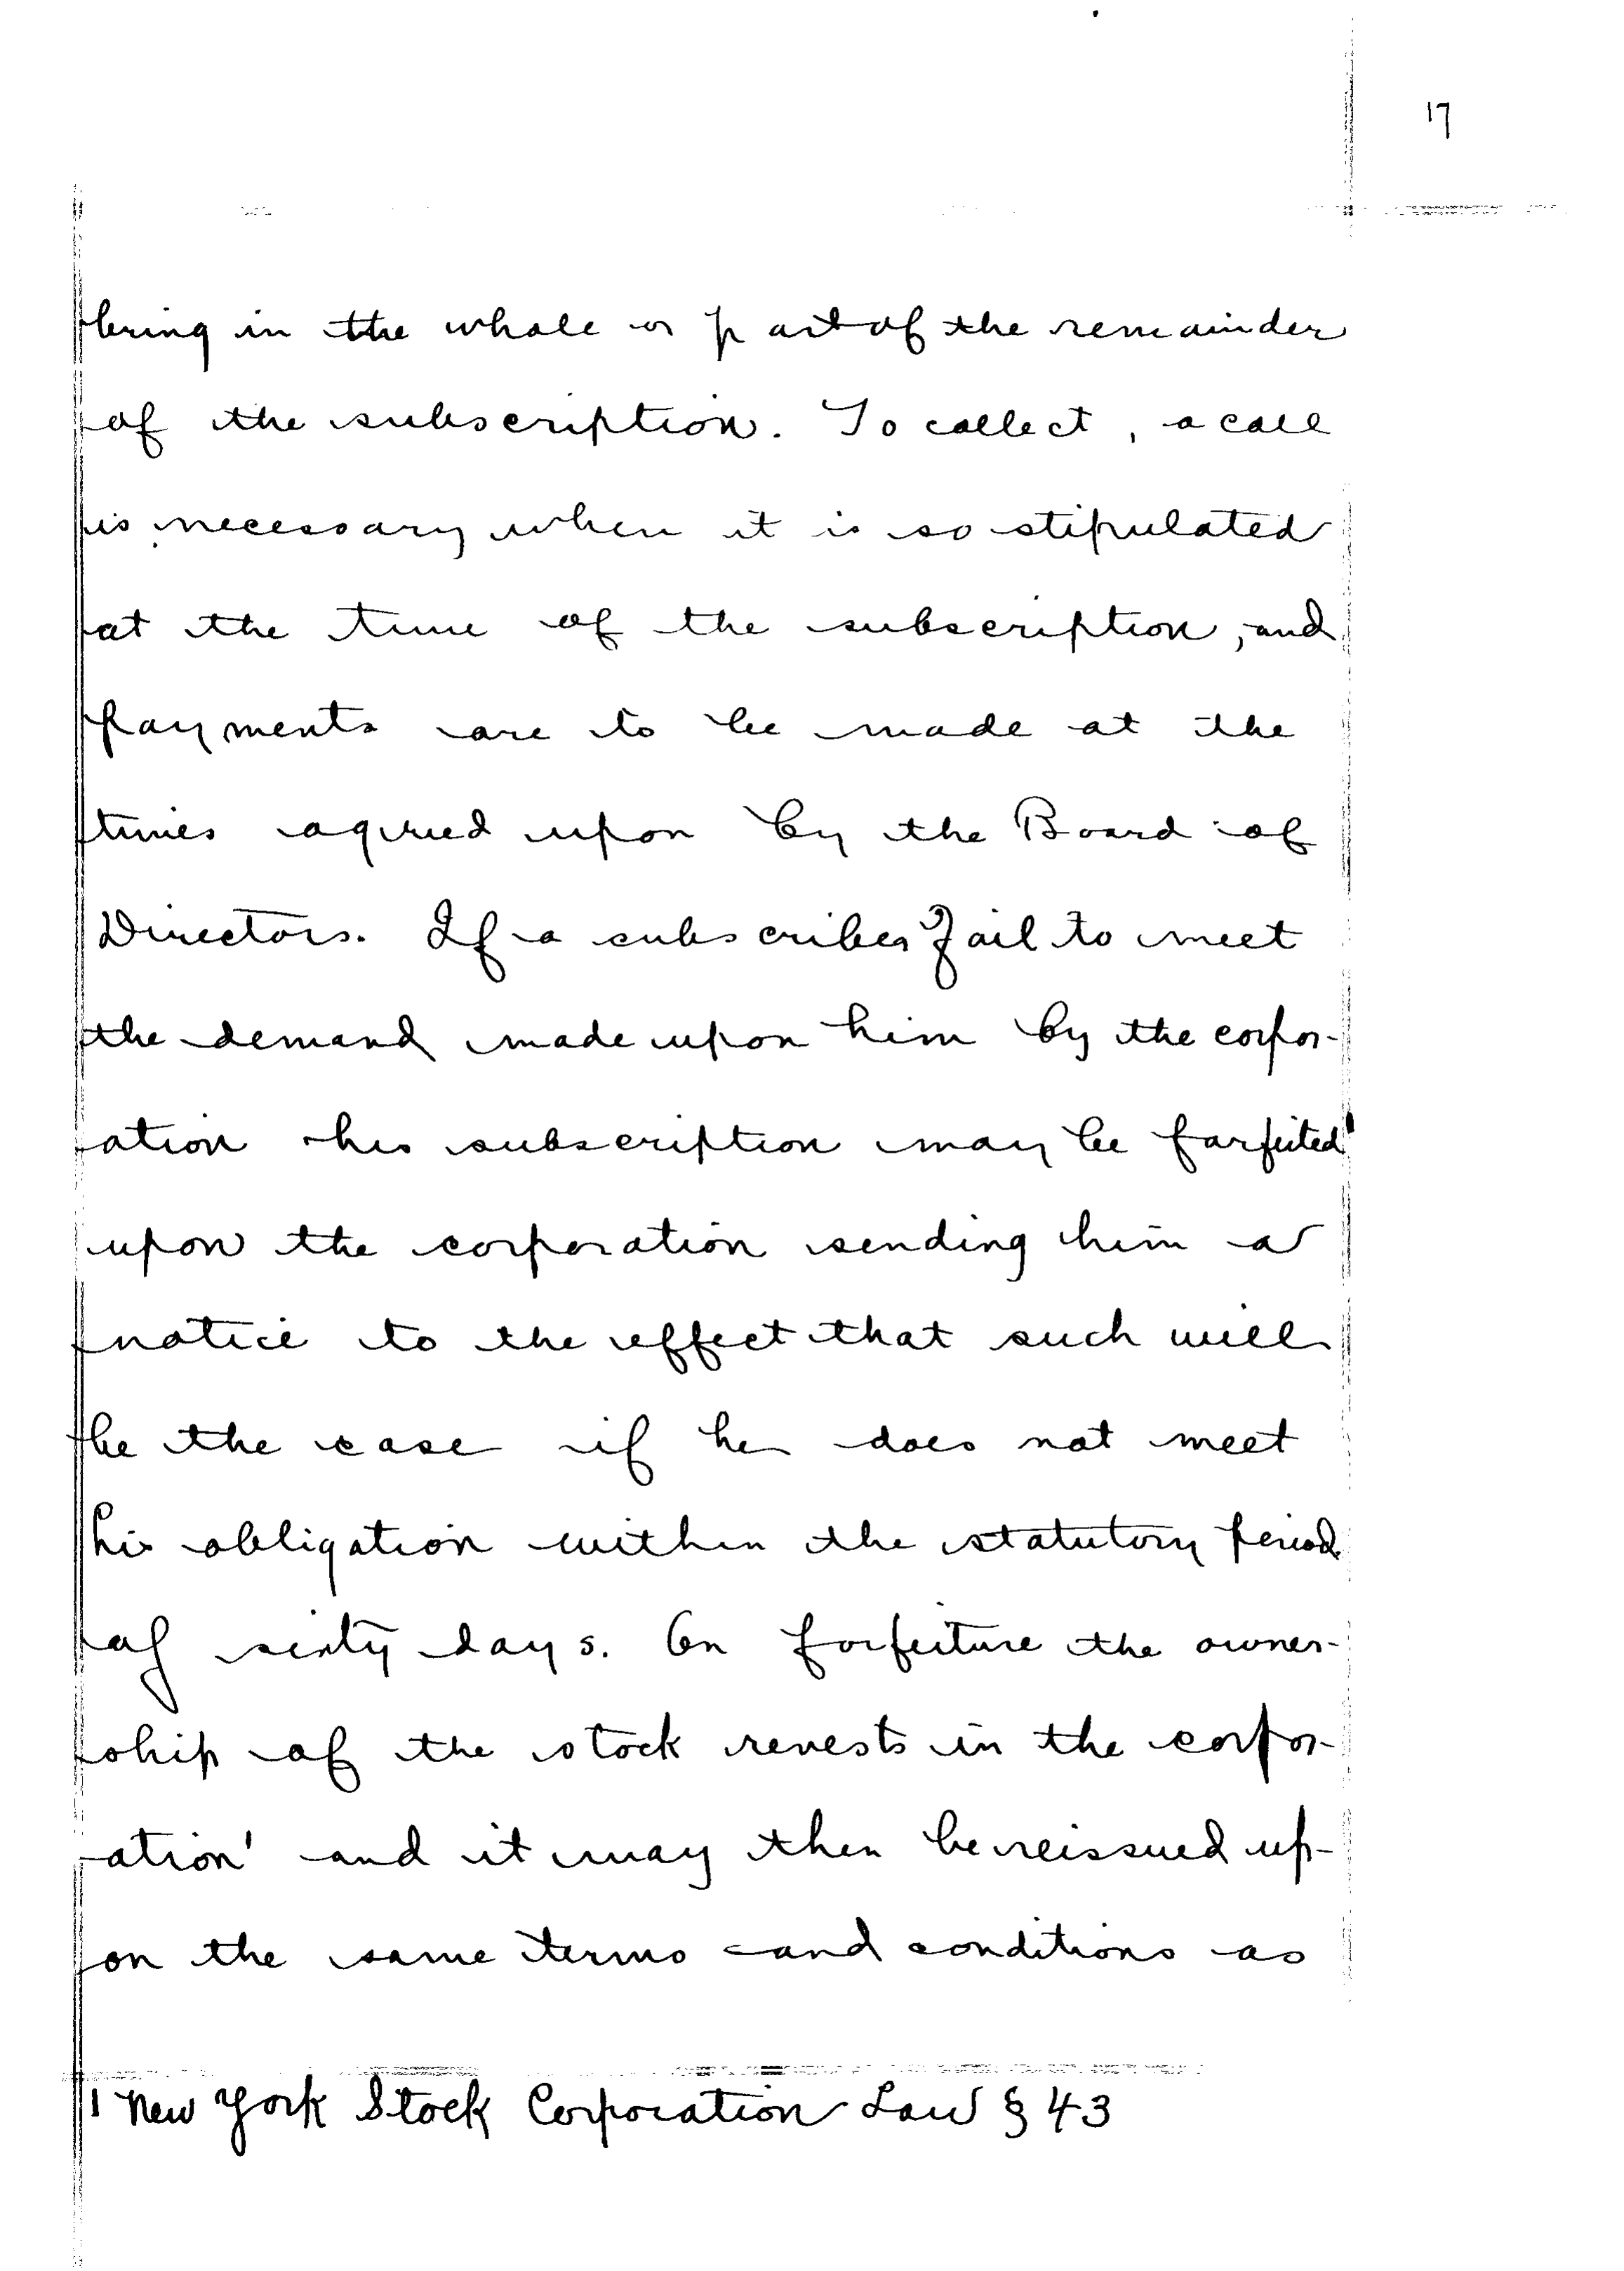 17
bring in the whole or part of the remainder
of the subscription. To collect, a call
is necessary when it is so stipulated
at the time of the subscription, and
payments are to be made at the
times agreed upon by the Board of
Directors. If a subscriber fail to meet
the demand made upon him by the corpor-
ation his subscription may be forfeited¹
upon the corporation sending him a
notice to the effect that such will
be the case if he does not meet
his obligation within the statutory period
of sixty days. On forfeiture the owner-
ship of the stock revests in the corpor-
ation¹ and it may then be reissued up-
on the same terms and conditions as
1 New York Stock Corporation Law § 43